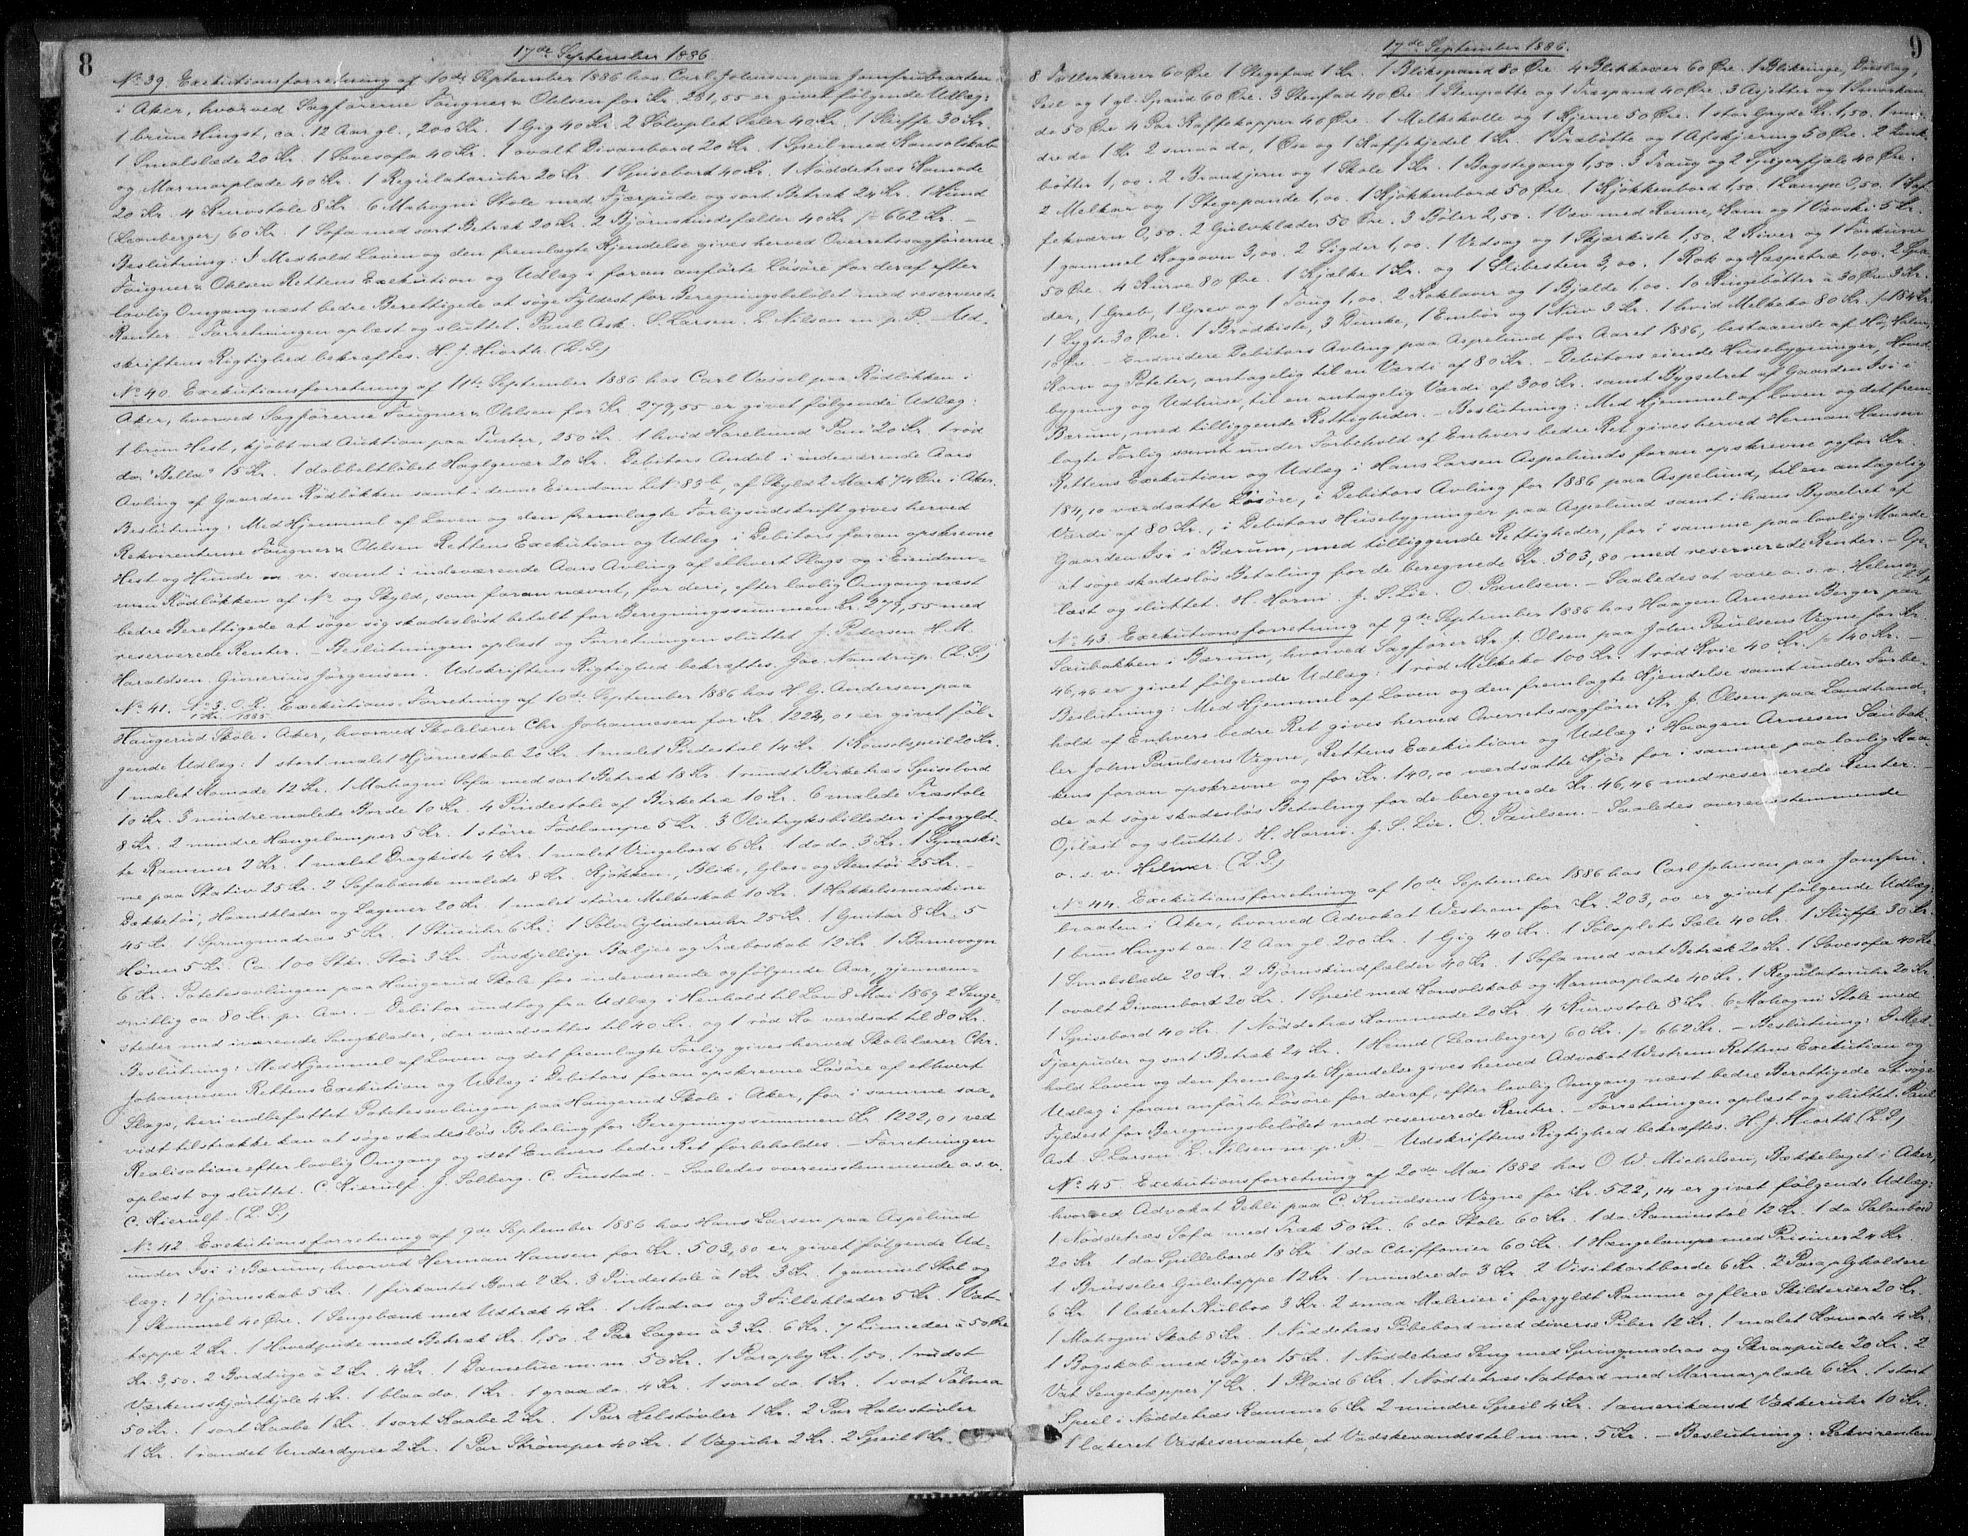 8
17de September 1886
No 39. Exekutionsforretning af 10de September 1886 hos Carl Johnsen paa Jomfrubraaten
i Aker, hvorved Sagførerne Fougner & Ohlsen for Kr. 281,55 er givet følgende Udlæg:
1 brun Hingst, ca. 12 Aar gl., 200 Kr. 1 Gig 40 Kr. 2 Sølvplet Seler 40 Kr. 1 Sluffe 30 Kr.
1 Smalslæde 20 Kr. 1 Sovesofa 40 Kr. 1 ovalt Divanbord 20 Kr. 1 Speil med Konsolskab
og Marmorplade 40 Kr. 1 Regulatoruhr 20 Kr. 1 Spisebord 40 Kr. 1 Nøddetræs Komode
20 Kr. 4 Kurvstole 8 Kr. 6 Mahogni Stole med Fjærpude og sort Betræk 24 Kr. 1 Hund
(Leonberger) 60 Kr. 1 Sofa med sort Betræk 20 Kr. 2 Bjørneskindsfelder 40 Kr. /= 662 Kr. –
Beslutning: I Medhold Loven og den fremlagte Kjendelse gives herved Overretssagførerne
Fougner & Ohlsen Rettens Exekution og Udlæg i foran anførte Løsøre for deraf efter
lovlig Omgang næst bedre Berettigede at søge Fyldest for Beregningsbeløbet med reserverede
Renter. – Forretningen oplæst og sluttet. Paul Ask. S. Larsen. L. Nilsen m. p. P. – Ud-
skriftens Rigtighed bekræftes. H. J. Hiorth. (L. S.)
No 40. Exekutionsforretning af 11te September 1886 hos Carl Vessel paa Rødløkken i
Aker, hvorved Sagførerne Fougner & Ohlsen for Kr. 279,55 er givet følgende Udlæg:
1 brun Hest, kjøbt ved Auktion paa Tuster, 250 Kr. 1 hvid Harehund "Pan" 20 Kr. 1 rød
do. "Bella" 15 Kr. 1 dobbeltløbet Haglgevær 20 Kr. Debitors Andel i indeværende Aars
Avling af Gaarden Rødløkken samt i denne Eiendom L. No 83 b, af Skyld 2 Mark 74 Øre i Aker.
Beslutning: Med Hjemmel af Loven og den fremlagte Forligsudskrift gives herved
Rekvirenterne Fougner & Ohlsen Rettens Exekution og Udlæg i Debitors foran opskrevne
Hest og Hunde m. v. samt i indeværende Aars Avling af ethvert Slags og i Eiendom-
men Rødløkken af No og Skyld, som foran nævnt, for deri, efter lovlig Omgang næst
bedre Berettigede at søge sig skadesløst betalt for Beregningssummen Kr. 279,55 med
reserverede Renter. – Beslutningen oplæst og Forretningen sluttet. J. Pedersen. H. M.
Haraldsen. Gunerius Jørgensen. Udskriftens Rigtighed bekræftes. Jac. Nandrup. (L. S.)
No 41. No 3. O. R. Exekutions-Forretning af 10de September 1886 hos H. G. Andersen paa
1 Kr. 1885
Haugerud Skole i Aker, hvorved Skolelærer Chr. Johannesen for Kr. 1222,01 er givet føl-
gende Udlæg: 1 stort malet Hjørneskab 20 Kr. 1 malet Piedestal 14 Kr. 1 Konsolspeil 20 Kr.
1 malet Komode 12 Kr. 1 Mahogni Sofa med sort Betræk 18 Kr. 1 rundt Birketræs Spisebord
10 Kr. 3 mindre malede Borde 10 Kr. 4 Pindestole af Birketræ 10 Kr. 6 malede Træstole
8 Kr. 2 mindre Hængelamper 5 Kr. 1 større Fodlampe 5 Kr. 3 Olietryksbilleder i forgyld-
te Rammer 2 Kr. 1 malet Dragkiste 4 Kr. 1 malet Vingebord 6 Kr. 1 do do. 3 Kr. 1 Symaski-
ne paa Stativ 25 Kr. 2 Sofabænke malede 8 Kr. Kjøkken-, Blik-, Glas- og Stentøi 25 Kr. –
Dækketøi, Haandklæder og Lagener 20 Kr. 1 malet større Melkeskab 10 Kr. 1 Hakkelsemaskine
45 Kr. 1 Springmadras 5 Kr. 1 Stueuhr 6 Kr. 1 Sølv-Cylinderuhr 25 Kr. 1 Guitar 8 Kr. 5
Høner 5 Kr. Ca. 100 Stkr. Stør 3 Kr. Forskjellige Baljer og Træboskab 12 Kr. 1 Barnevogn
6 Kr. Potetesavlingen paa Haugerud Skole for indeværende og følgende Aar, gjennem-
snitlig ca 80 Kr. pr. Aar. – Debitor undtog fra Udlæg i Henhold til Lov 8 Mai 1869 2 Senge-
steder med iværende Sengklæder, der værdsattes til 40 Kr. og 1 rød Ko værdsat til 80 Kr.
Beslutning: Med Hjemmel af Loven og det fremlagte Forlig gives herved Skolelærer Chr.
Johannesen Rettens Exekution og Udlæg i Debitors foran opskrevne Løsøre af ethvert
Slags, heri indbefattet Potetesavlingen paa Haugerud Skole i Aker, for i samme saa-
vidt tilstrække kan at søge skadesløs Betaling for Beregningssummen Kr. 1222,01 ved
Realisation efter lovlig Omgang og idet Enhvers bedre Ret forbeholdes. – Forretningen
oplæst og sluttet. C. Kierulf. J. Solberg. C. Finstad. – Saaledes overensstemmende o. s. v.
C. Kierulf. (L. S.)
No 42 Exekutionsforretning af 9de September 1886 hos Hans Larsen paa Aspelund
under Isi i Bærum, hvorved Herman Hansen for Kr. 503,80 er givet følgende Ud-
læg: 1 Hjørneskab 5 Kr. 1 firkantet Bord 2 Kr. 3 Pindestole à 1 Kr. 3 Kr. 1 gammel Stol og
1 Skammel 40 Øre. 1 Sengebænk med Udtræk 4 Kr. 1 Madras og 3 Filleklæder 5 Kr. 1 Vat-
tæppe 2 Kr. 1 Hovedpude med Betræk Kr. 1,50. 2 Par Lagen à 3 Kr. 6 Kr. 7 Linneder à 50 Øre
Kr. 3,50. 2 Bordduge à 2 Kr. 4 Kr. 1 Damelue m. m. 50 Kr. 1 Paraply Kr. 1,50. 1 rudet
Værkensskjørtkjole 4 Kr. 1 blaa do. 1 Kr. 1 graa do. 4 Kr. 1 sort do. 1 Kr. 1 sort Talma
50 Kr. 1 sort Kaabe 1 Kr. 1 sort Kaabe 2 Kr. 1 Par Helstøvler 1 Kr. 2 Par Halvstøvler
1 Kr. 1 randet Underdyne 2 Kr. 1 Par Strømper 40 Kr. 1 Væguhr 2 Kr. 2 Speil 1 Kr.
9
17de September 1886.
8 Tallerkener 60 Øre. 1 Stegefad 1 Kr. 1 Blikspand 80 Øre. 4 Blikkopper 60 Øre. 1 Blikringe, Dørslag,
Seil og 1 gl. Spand 60 Øre. 3 Stenfad 40 Øre. 1 Stenpotte og 1 Træspand 40 Øre. 3 Asjetter og 1
do 50 Øre. 4 Par Kaffekopper 40 Øre. 1 Melkekolle og 1 Kjerne 50 Øre. 1 stor Gryde Kr. 1,50. 1 min-
dre do 1 Kr. 2 smaa do, 1 Øse og 1 Kaffekjedel 1 Kr. 1 Træbøtte og 1 Afskjæring 50 Øre. 2
bøtter 1,00. 2 Brandjern og 1 Skole 1 Kr. 1 Bagstegang 1,50. 3 Traug og 2 Spegerfjæle 40 Øre.
2 Melkar og 1 Stegepande 1,00. 1 Kjøkkenbord 50 Øre. 1 Kjøkkenbord 1,50. 1 Lampe 0,50. 1 Kaf-
fekværn 0,50. 2 Gulvklæder 50 Øre. 3 Bøler 2,50. 1 Væv med Renne, Kam og 1 Vævski 5 Kr.
1 gammel Kogeovn 3,00. 2 Sigder 1,00. 1 Vedsag og 1 Skjærkiste 1,50. 2 River og 1
50 Øre. 4 Kurve 80 Øre. 1 Kjælke 1 Kr. og 1 Slibesten 3,00. 1 Rok og Hæspetræ 1,00. 2 Spa-
der, 1 Greb, 1 Grev og 1 Toug 1,00. 2 Koklaver og 1 Bjælde 1,00. 10 Ringebøtter à 30 Øre 3 Kr.
1 Lygte 30 Øre. 1 Brødkiste, 3 Dunke, 1 Embør og 1 Nuv 3 Kr. 1 hvid Melkeko 80 Kr. /= 184 Kr.
10 Øre. – Endvidere Debitors Avling paa Aspelund for Aaret 1886, bestaaende af Høj, Halm,
Korn og Poteter, antagelig til en Værdi af 80 Kr. – Debitors eiende Husebygninger, Hoved-
bygning og Udhuse, til en antagelig Værdi af 300 Kr. samt Bygselret af Gaarden Isi i
Bærum, med tilliggende Rettigheder. – Beslutning: Med Hjemmel af Loven og det frem-
lagte Forlig samt under Forbehold af Enhvers bedre Ret gives herved Herman Hansen
Rettens Exekution og Udlæg i Hans Larsen Aspelunds foran opskrevne og for Kr.
184,10 værdsatte Løsøre, i Debitors Avling for 1886 paa Aspelund, til en antagelig
Værdi af 80 Kr., i Debitors Husebygninger paa Aspelund samt i hans Byxelret af
Gaarden Isi i Bærum, med tilliggende Rettigheder, for i samme paa lovlig Maade
at søge skadesløs Betaling for de beregnede Kr. 503,80 med reserverede Renter. – Op-
læst og sluttet. H. Horni. J. S. Lie. O. Paulsen. – Saaledes at være o. s. v. Helmer (L. S.)
No 43. Exekutionsforretning af 9de September 1886 hos Haagen Arnesen Berger paa
Saubakken i Bærum, hvorved Sagfører Kr. J. Olsen paa John Paulsens Vegne for Kr.
46,46 er givet følgende Udlæg: 1 rød Melkeko 100 Kr. 1 rød Kvie 40 Kr. /= 140 Kr. –
Beslutning: Med Hjemmel af Loven og den fremlagte Kjendelse samt under Forbe-
hold af Enhvers bedre Ret gives herved Overretssagfører Kr. J. Olsen paa Landhand-
ler John Paulsens Vegne, Rettens Exekution og Udlæg i Haagen Arnesen Saubak-
kens foran opskrevne og for Kr. 140,00 værdsatte Kjør for i samme paa lovlig Maa-
de at søge skadesløs Betaling for de beregnede Kr. 46,46 med reserverede Renter. –
Oplæst og sluttet. H. Horni. J. S. Lie. O. Paulsen. – Saaledes overensstemmende
o. s. v. Helmer. (L. S.)
No 44. Exekutionsforretning af 10de September 1886 hos Carl Johnsen paa Jomfru-
braaten i Aker, hvorved Advokat Westrem for Kr. 203,00 er givet følgende Udlæg:
1 brun Hingst ca. 12 Aar gl. 200 Kr. 1 Gig 40 Kr. 1 Sølvplets Sæle 40 Kr. 1 Sluffe 30 Kr.
1 Smalslæde 20 Kr. 2 Bjørneskindfælder 40 Kr. 1 Sofa med sort Betræk 20 Kr. 1 Sovesofa 40 Kr.
1 ovalt Divanbord 20 Kr. 1 Speil med Konsolskab og Marmorplade 40 Kr. 1 Regulatoruhr 20 Kr.
1 Spisebord 40 Kr. 1 Nøddetræs Kommode 20 Kr. 4 Kurvstole 8 Kr. 6 Mahogni Stole med
Fjærpuder og sort Betræk 24 Kr. 1 Hund (Leonberger) 60 Kr. /= 662 Kr. – Beslutning: I Med-
hold Loven og den fremlagte Kjendelse gives herved Advokat Westrem Rettens Exekution og
Udlæg i foran anførte Løsøre for deraf, efter lovlig Omgang næst bedre Berettigede at søge
Fyldest for Beregningsbeløbet med reserverede Renter. – Forretningen oplæst og sluttet. Paul
Ask. S. Larsen. L. Nilsen m. p. P. – Udskriftens Rigtighed bekræftes. H. J. Hiorth (L. S.)
No 45. Exekutionsforretning af 20de Mai 1882 hos O. W. Michelsen, Bækkelaget i Aker,
hvorved Advokat Dehle paa C. Knudsens Vegne for Kr. 522,14 er givet følgende Udlæg:
1 Nøddetræs Sofa med Træk 50 Kr. 6 do Stole 60 Kr. 1 do Kaminstol 12 Kr. 1 do Salonbord
20 Kr. 1 do Spillebord 18 Kr. 1 do Chiffonier 60 Kr. 1 Hængelampe med Prismer 24 Kr.
1 Brüsseler Gulvtæppe 12 Kr. 1 mindre do 3 Kr. 2 Visitkortborde 6 Kr. 2 Paraplyholdere
6 Kr. 1 lakeret Kulbox 3 Kr. 2 smaa Malerier i forgyldt Ramme og flere Skilderier 20 Kr.
1 Mahogni Skab 8 Kr. 1 Nøddetræs Pibebord med diverse Piber 12 Kr. 1 malet Komode 4 Kr.
1 Bogskab med Bøger 15 Kr. 1 Nøddetræs Seng med Springmadras og Skraapude 20 Kr. 2
Vat Sengetæpper 7 Kr. 1 Plaid 6 Kr. 1 Nøddetræs Natbord med Marmorplade 6 Kr. 1 stort
Speil i Nøddetræs Ramme 6 Kr. 2 mindre Speil 4 Kr. 1 amerikansk Vækkeruhr 10 Kr.
1 lakeret Vaskeservante, et Vadskevandsstel m. m. 5 Kr. – Beslutning: Rekvirenten